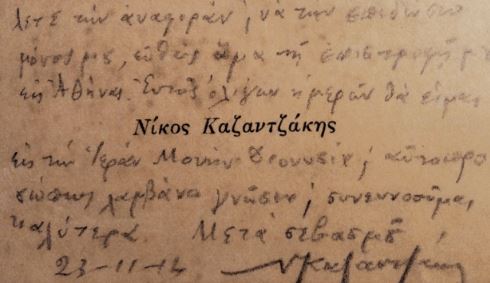 λετε τὴν ἀναφορὰν, νὰ την ἐπιδώσω
μόνος μου, εὐθὺς ἅμα τῇ ἐπιστροφῇ
εἰς Ἀθήνας. Ἐντὸς ὀλίγων ἡμερῶν θὰ εἶμαι
Νίκος Καζαντζάκης
εἰς τὴν Ἱερὰν Μονὴν Διονυσίου; αὐτοπρο
σώπως λαμβάνω γνῶσιν; συνεννοούμαι
καλύτερα Μετὰ σεβασμοῦ
23-11-14 Ν Καζαντζάκης